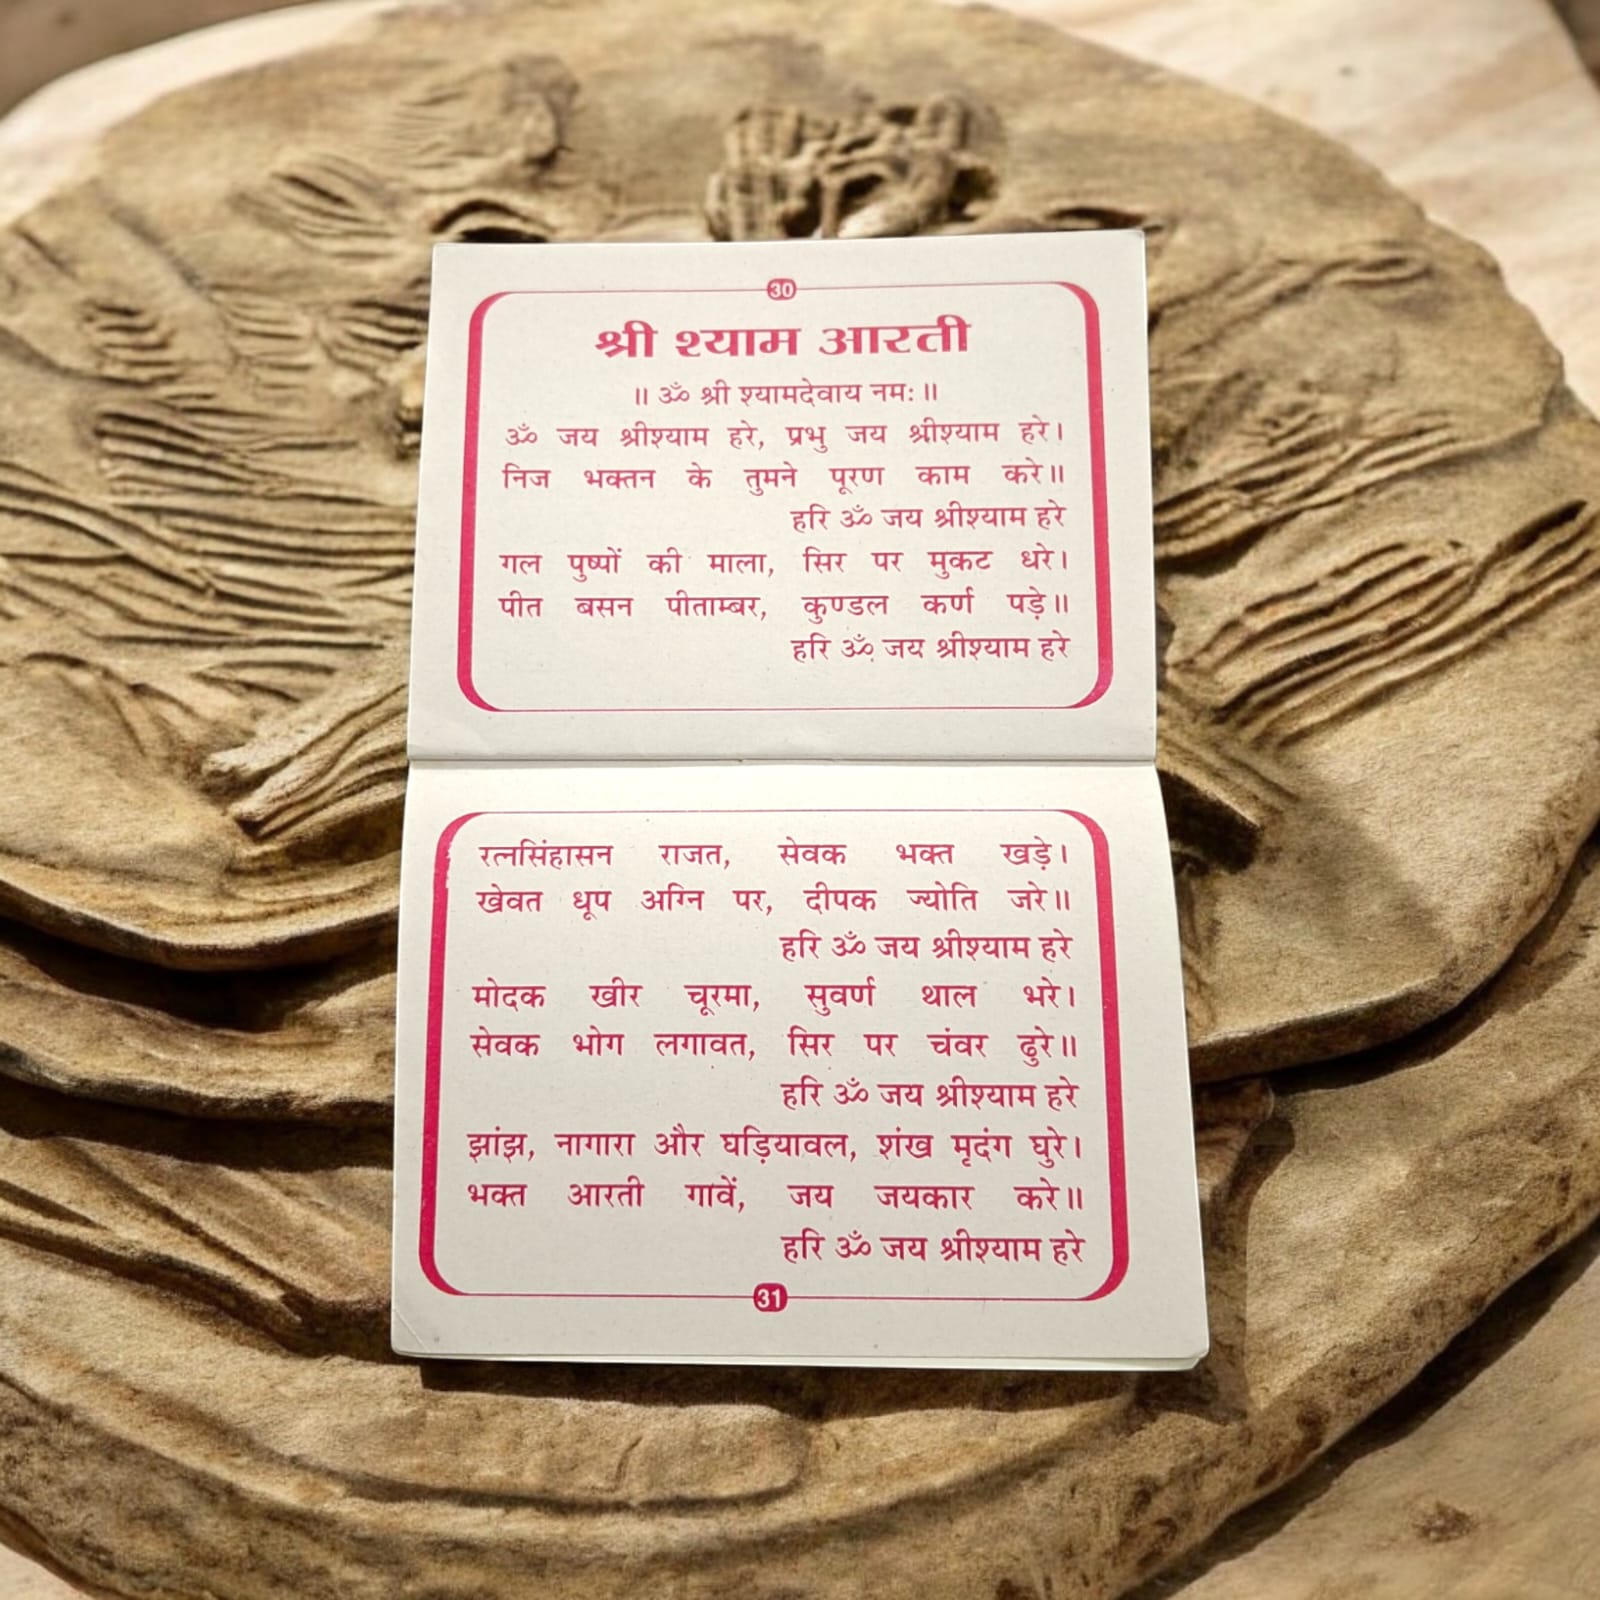 30
श्री श्याम आरती
॥ ॐ श्री श्यामदेवाय नमः ॥
ॐ जय श्रीश्याम हरे, प्रभु जय श्रीश्याम हरे।
निज भक्तन के तुमने पूरण काम करे॥
हरि ॐ जय श्रीश्याम हरे
गल पुष्पों की माला, सिर पर मुकट धरे।
पीत बसन पीताम्बर, कुण्डल कर्ण पड़े॥
हरि ॐ जय श्रीश्याम हरे
रत्नसिंहासन राजत, सेवक भक्त खड़े।
खेवत धूप अग्नि पर, दीपक ज्योति जरे॥
हरि ॐ जय श्रीश्याम हरे
मोदक खीर चूरमा, सुवर्ण थाल भरे।
सेवक भोग लगावत, सिर पर चंवर ढुरे॥
हरि ॐ जय श्रीश्याम हरे
झांझ, नागारा और घड़ियावल, शंख मृदंग घुरे।
भक्त आरती गावें, जय जयकार करे॥
हरि ॐ जय श्रीश्याम हरे
31